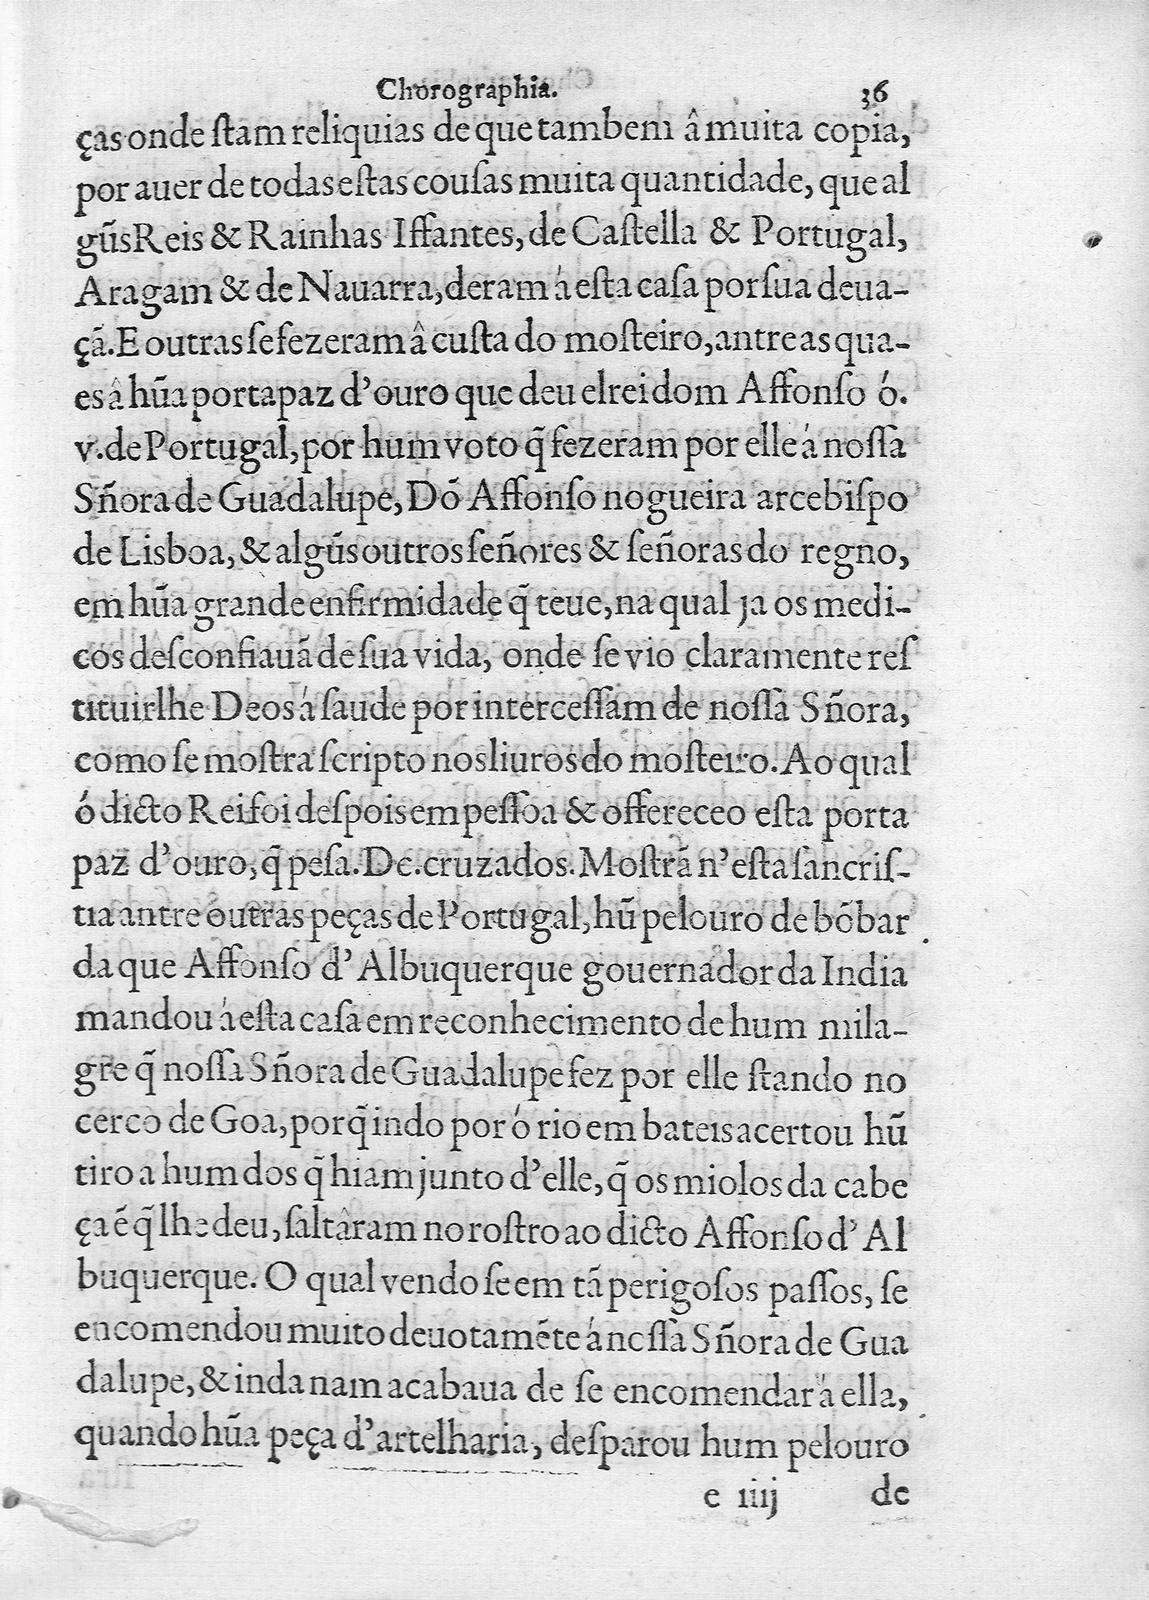 Chorographia. 36
ças onde ſtam reliquias de que tambem â muita copia,
por auer de todas eſtas couſas muita quantidade, que al
gũs Reis & Rainhas Iffantes, de Caſtella & Portugal,
Aragam & de Nauarra, deram á eſta caſa por ſua deua-
çã. E outras ſe fezeram â cuſta do moſteiro, antre as qua-
es â hũa portapaz d'ouro que deu elrei dom Affonſo ó.
v. de Portugal, por hum voto q̃ fezeram por elle á noſſa
Sñora de Guadalupe, Dõ Affonſo nogueira arcebiſpo
de Lisboa, & algũs outros ſeñores & ſeñoras do regno,
em hũa grande enfirmidade q̃ teue, na qual ja os medi-
cos deſconfiauã de ſua vida, onde ſe vio claramente reſ
tituirlhe Deos á ſaude por interceſſam de noſſa Sñora,
como ſe moſtra ſcripto nos liuros do moſteiro. Ao qual
ó dicto Rei foi deſpois em peſſoa & offereceo eſta porta
paz d'ouro, q̃ peſa. Dc. cruzados. Moſtrã n'eſta ſancriſ-
tia antre outras peças de Portugal, hũ pelouro de bõbar
da que Affonſo d'Albuquerque gouernador da India
mandou á eſta caſa em reconhecimento de hum mila-
gre q̃ noſſa Sñora de Guadalupe fez por elle ſtando no
cerco de Goa, porq̃ indo por ó rio em bateis acertou hũ
tiro a hum dos q̃ hiam junto d'elle, q̃ os miolos da cabe
ça ẽ q̃ lhe deu, ſaltâram no roſtro ao dicto Affonſo d'Al
buquerque. O qual vendo ſe em tã perigoſos paſſos, ſe
encomendou muito deuotamẽte á noſſa Sñora de Gua
dalupe, & inda nam acabaua de ſe encomendar á ella,
quando hũa peça d'artelharia, deſparou hum pelouro
e iiij de